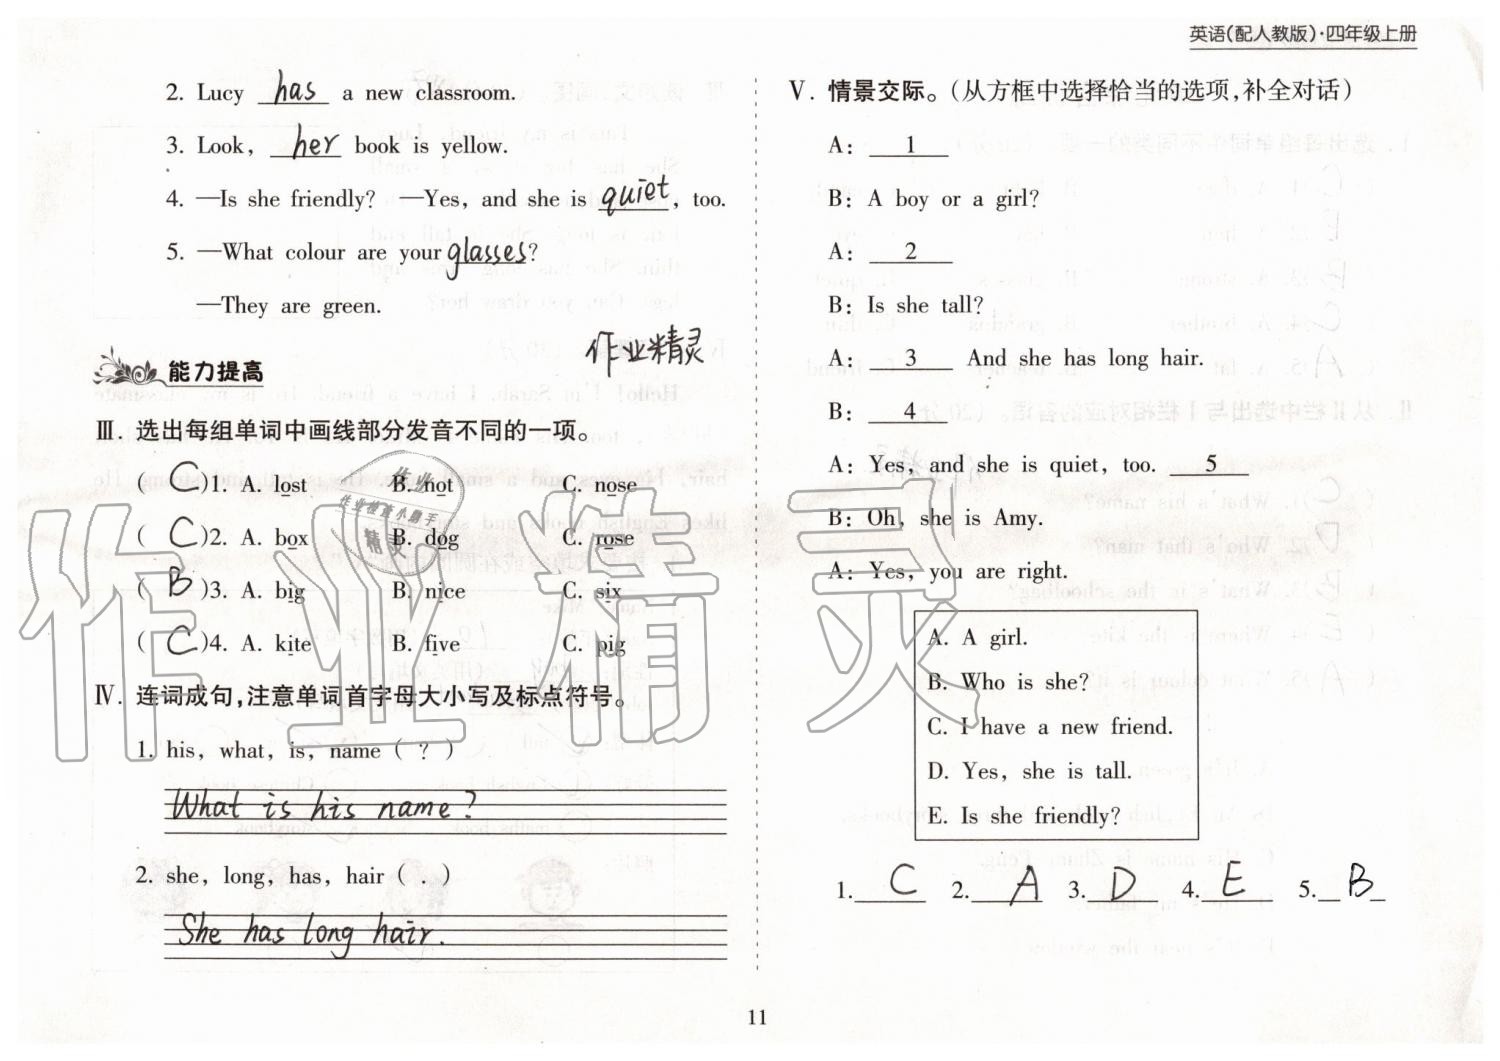 英语(配人教版)·四年级上册
2. Lucy has a new classroom.
3. Look, her book is yellow.
4. —Is she friendly? —Yes, and she is quiet, too.
5. —What colour are your glasses?
—They are green.
作业精灵
能力提高
Ⅲ. 选出每组单词中画线部分发音不同的一项。
( C )1. A. lost B. hot C. nose
( C )2. A. box B. dog C. rose
( B )3. A. big B. nice C. six
( C )4. A. kite B. five C. pig
Ⅳ. 连词成句,注意单词首字母大小写及标点符号。
1. his, what, is, name ( ? )
What is his name?
2. she, long, has, hair ( . )
She has long hair.
Ⅴ. 情景交际。(从方框中选择恰当的选项,补全对话)
A: 1
B: A boy or a girl?
A: 2
B: Is she tall?
A: 3 And she has long hair.
B: 4
A: Yes, and she is quiet, too. 5
B: Oh, she is Amy.
A: Yes, you are right.
A. A girl.
B. Who is she?
C. I have a new friend.
D. Yes, she is tall.
E. Is she friendly?
1. C 2. A 3. D 4. E 5. B
11
作业精灵